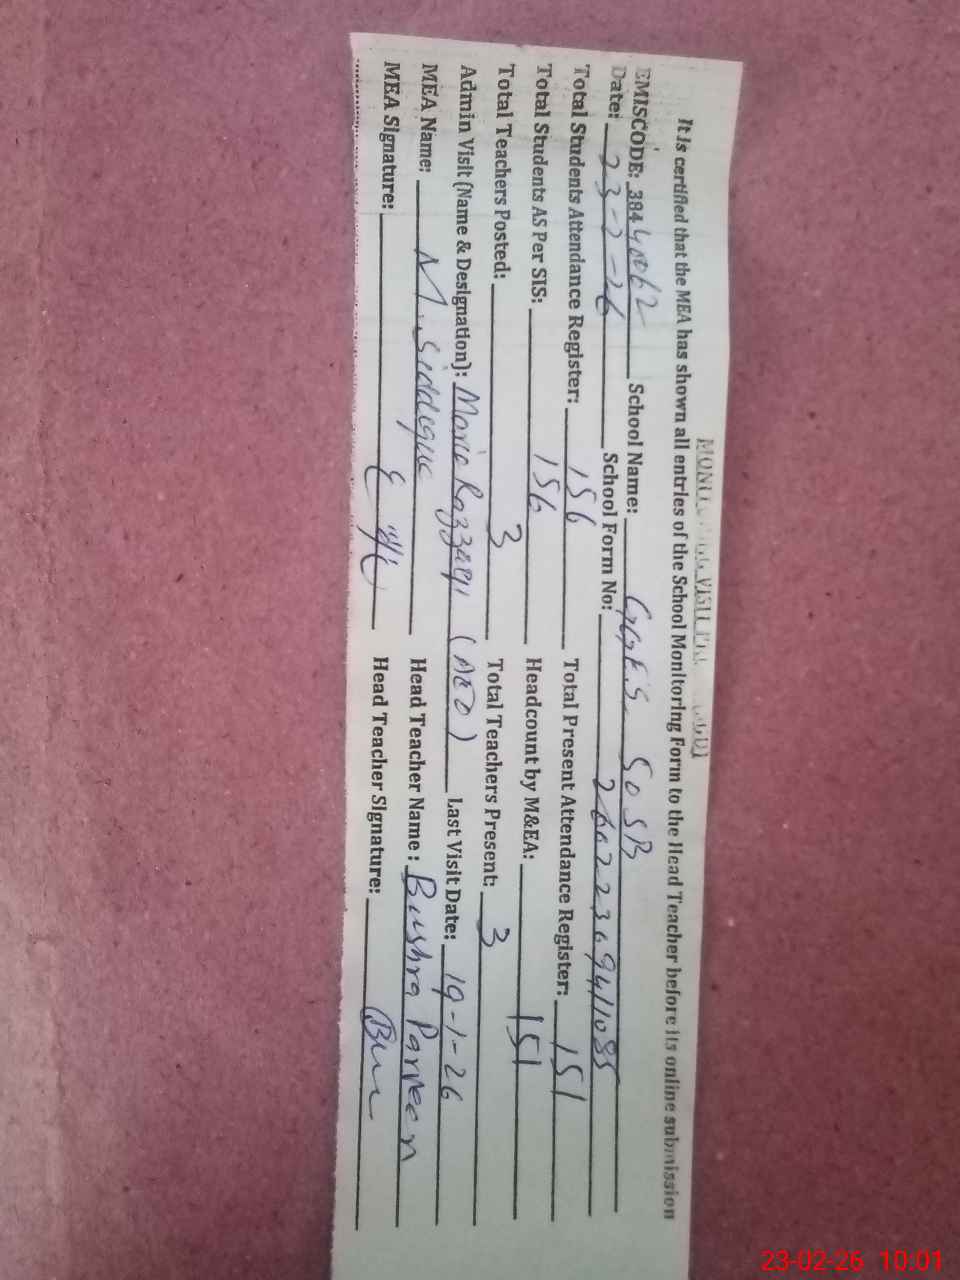 MONITORING VISIT
It is certified that the MEA has shown all entries of the School Monitoring Form to the Head Teacher before its online submission
EMISCODE: 38440062 School Name: GGES, 50 SB
Date: 23-2-26 School Form No: 26022369411085
Total Students Attendance Register: 156 Total Present Attendance Register: 151
Total Students AS Per SIS: 156 Headcount by M&EA: 151
Total Teachers Posted: 3 Total Teachers Present: 3
Admin Visit (Name & Designation): Razzaq (AEO) Last Visit Date: 19-1-26
MEA Name: M. Siddique Head Teacher Name: Bushra Parveen
MEA Signature: Head Teacher Signature:
23-02-26 10:01